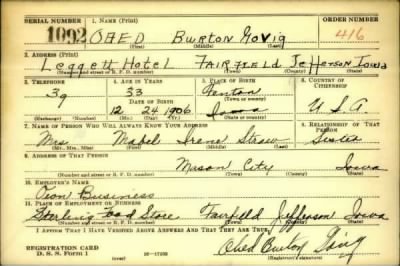 SERIAL NUMBER 1. NAME (Print) ORDER NUMBER
1092 OBED Burton Govig 416
(First) (Middle) (Last)
2. ADDRESS (Print)
Leggett Hotel FAIRFIELD Jefferson Iowa
(Number and street or R. F. D. number) (Town) (County) (State)
3. TELEPHONE 4. AGE IN YEARS 5. PLACE OF BIRTH 6. COUNTRY OF CITIZENSHIP
39 33
DATE OF BIRTH (Town or county)
12 24 1906 Iowa U.S.A.
(Mo.) (Day) (Yr.) (State or country)
7. NAME OF PERSON WHO WILL ALWAYS KNOW YOUR ADDRESS 8. RELATIONSHIP OF THAT PERSON
Mrs Mabel Irene Straw Sister
(Mr., Mrs., Miss) (First) (Middle) (Last)
9. ADDRESS OF THAT PERSON
Mason City Iowa
(Number and street or R. F. D. number) (Town) (County) (State)
10. EMPLOYER'S NAME
Own Business
11. PLACE OF EMPLOYMENT OR BUSINESS
Sterling Food Store Fairfield Jefferson Iowa
(Number and street or R. F. D. number) (Town) (County) (State)
I AFFIRM THAT I HAVE VERIFIED ABOVE ANSWERS AND THAT THEY ARE TRUE.
REGISTRATION CARD
D. S. S. Form 1
Obed Burton Govig